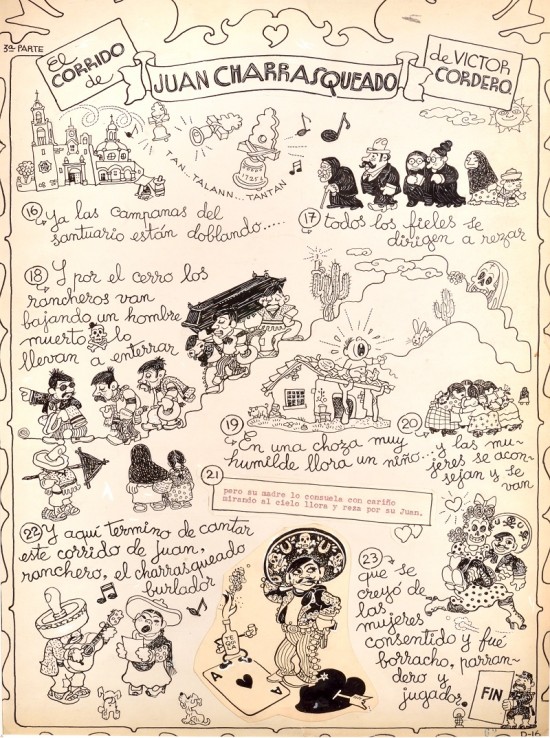 3ª PARTE
El
CORRIDO
de
JUAN CHARRASQUEADO
de VICTOR
CORDERO
TAN... TALANN... TANTAN
16 Ya las campanas del
santuario están doblando.....
17 todos los fieles se
dirigen a rezar
18 Y por el cerro los
rancheros van
bajando un hombre
muerto lo
llevan a enterrar
19 En una choza muy
humilde llora un niño...
20 y las mu-
jeres se acon-
sejan y se
van
21
pero su madre lo consuela con cariño
mirando al cielo llora y reza por su Juan.
22 Y aquí termino de cantar
este corrido de juan,
ranchero, el charrasqueado
burlador
23
que se
creyó de
las
mujeres
consentido y fué
borracho, parran-
dero y
jugador.
A
A
FIN
D-16